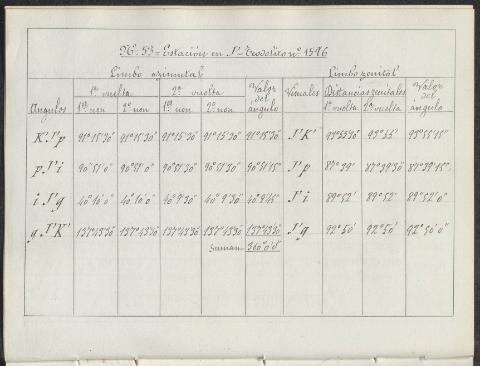 Nº. 53 = Estación en J'= Teodolito nº 1596
Limbo azimutal Limbo zenital
1ª vuelta 2ª vuelta Valor del ángulo Visuales Distancias zenitales Valor del ángulo
Angulos 1er non 2º non 1er non 2º non 1ª vuelta 2ª vuelta
K'J'p 91°15'30" 91°15'30" 91°15'30" 91°15'30" 91°15'30" J'K' 93°55'30" 93°55' 93°55'15"
pJ'i 90°51'0" 90°51'0" 90°51'30" 90°51'30" 90°51'15" J'p 87°39' 87°39'30" 87°39'15"
iJ'g 40°10'0" 40°10'0" 40°9'30" 40°9'30" 40°9'45" J'i 89°52' 89°52' 89°52'0"
gJ'K' 137°43'30" 137°43'30" 137°43'30" 137°43'30" 137°43'30" J'g 92°50' 92°50' 92°50'0"
Suman 360°0'0"